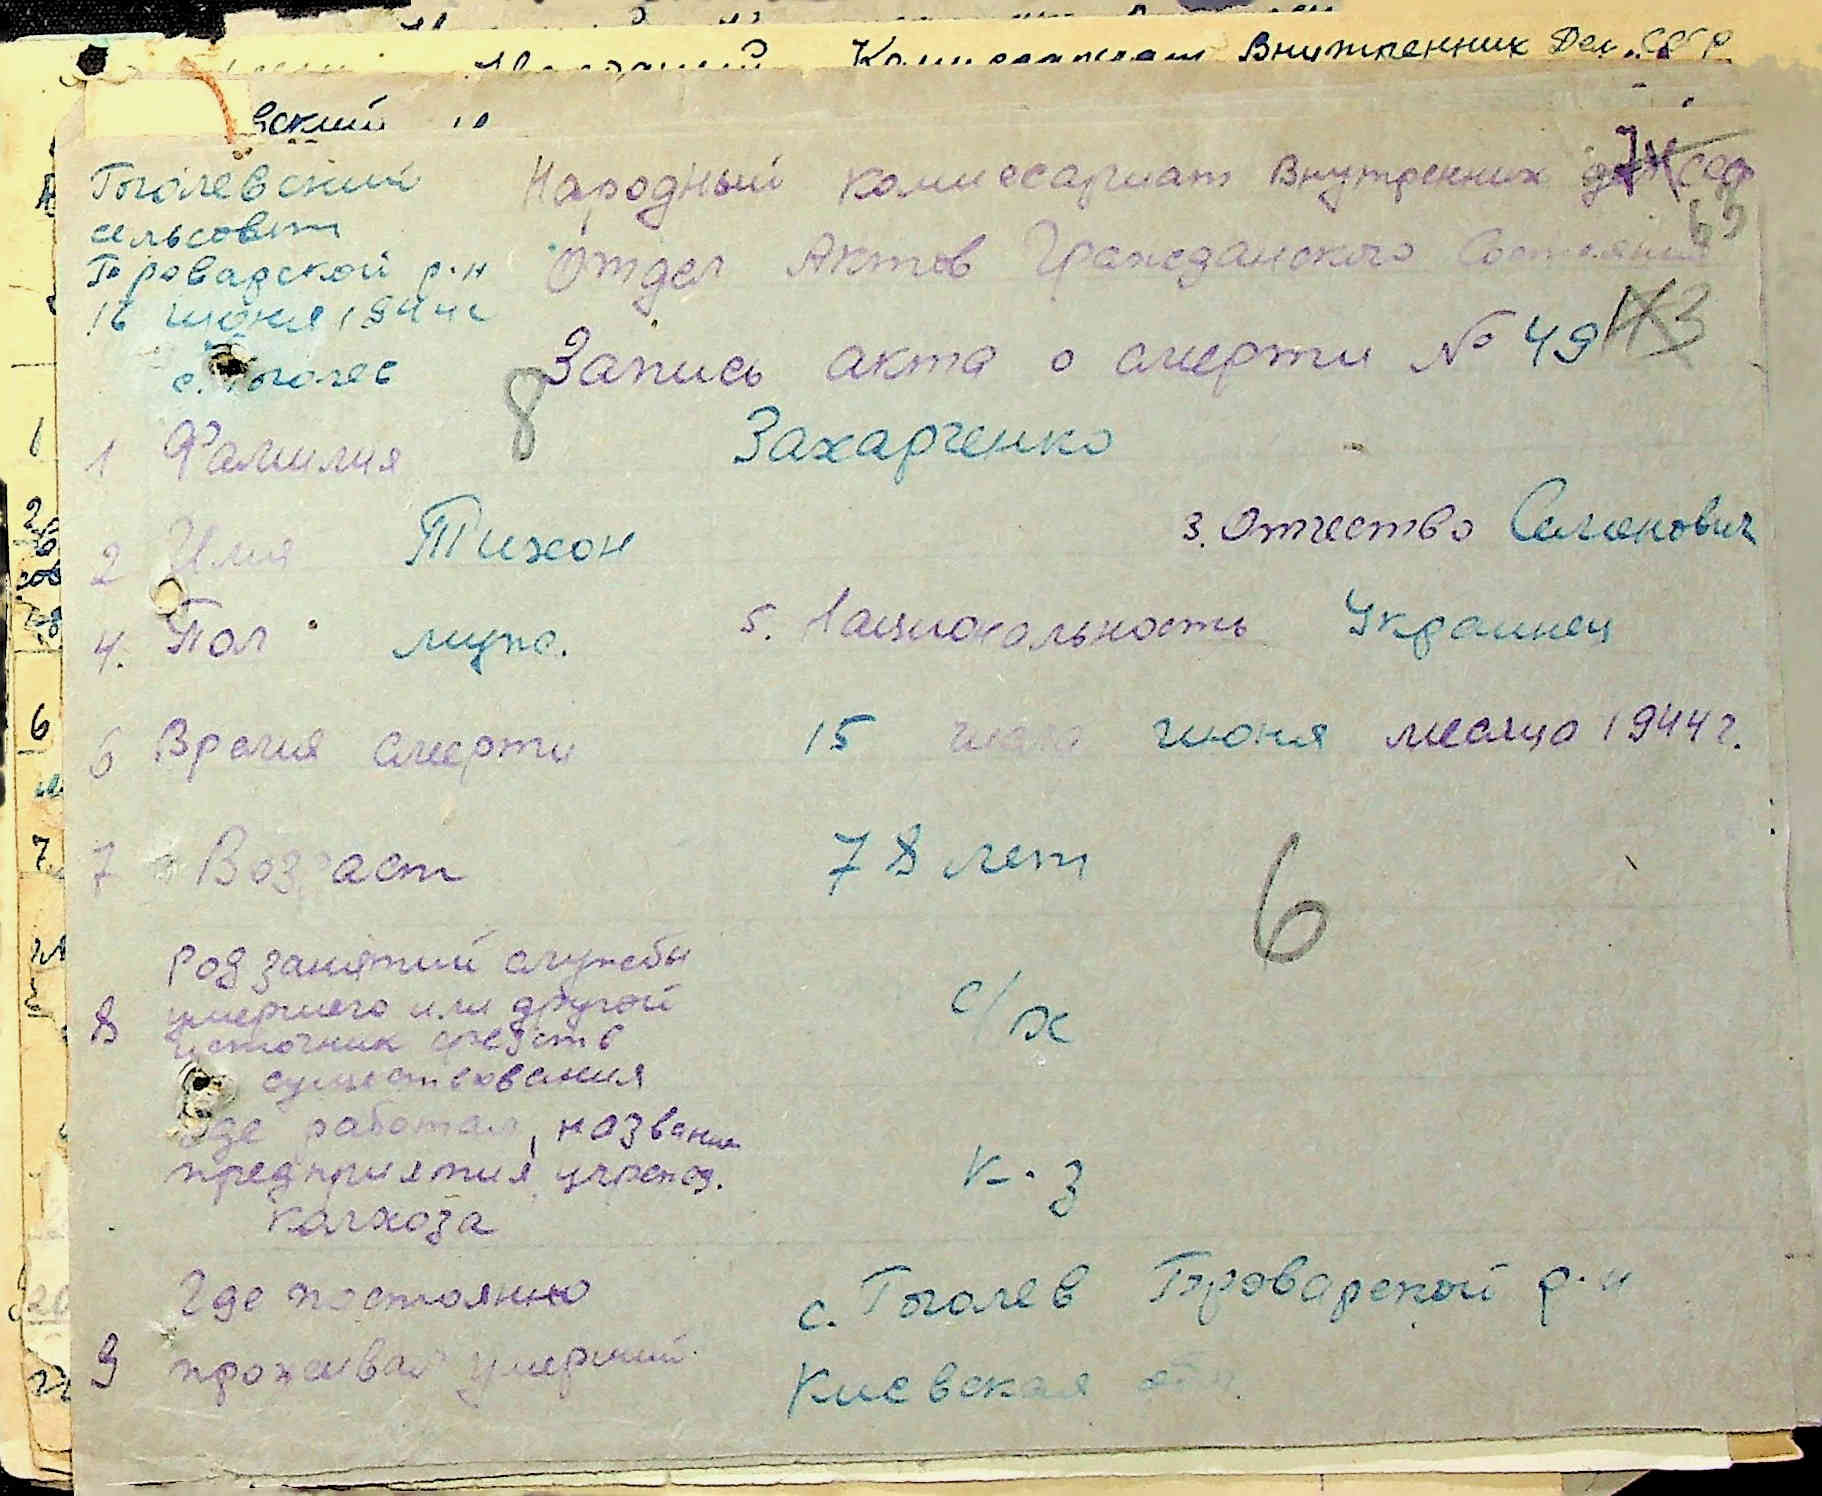 Комиссариат Внутренних Дел СССР
вский
Гоголевский
сельсовет
Броварской р-н
16 июня 1944 г
с. Гоголев
Народный комиссариат Внутренних дел СССР
63
Отдел Актов Гражданского Состояния
Запись акта о смерти № 49
8
1 Фамилия Захарченко
2 Имя Тихон 3. Отчество Семенович
4. Пол муж. 5. Национальность Украинец
6 Время смерти 15 числа июня месяца 1944 г.
7 Возраст 78 лет
6
8 Род занятий службы
умершего или другой
источник средств
существования
с/х
Где работал, название
предприятия, учрежд.
колхоза
к-з
9 Где постоянно
проживал умерший
с. Гоголев Броварской р-н
Киевская обл.